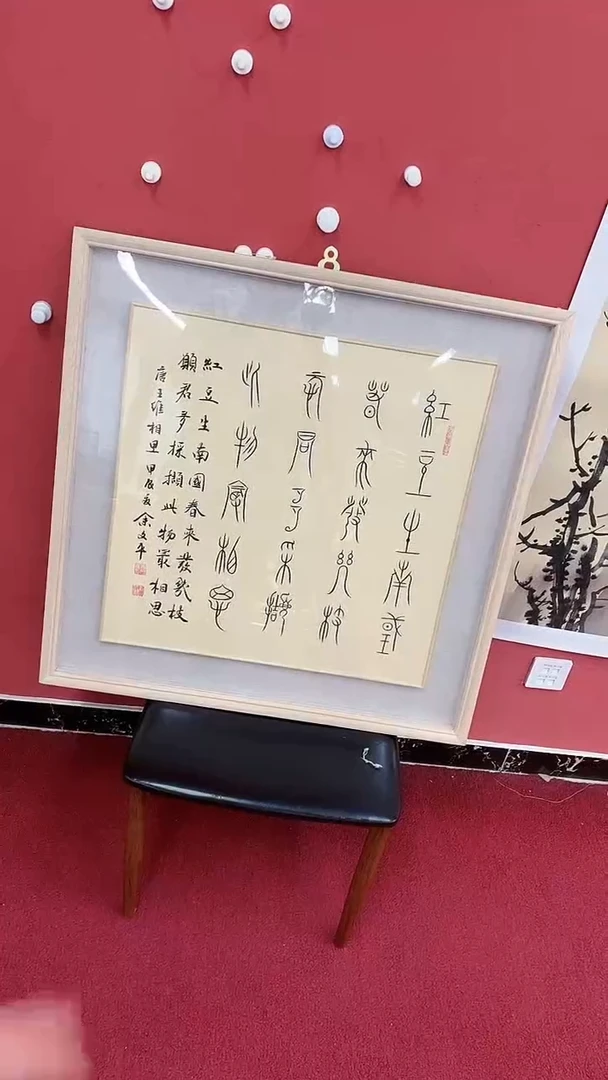 紅豆生南國
春來發幾枝
願君多采擷
此物最相思
紅豆生南國春來發幾枝
願君多採擷此物最相思
唐王維相思 甲辰夏余文平